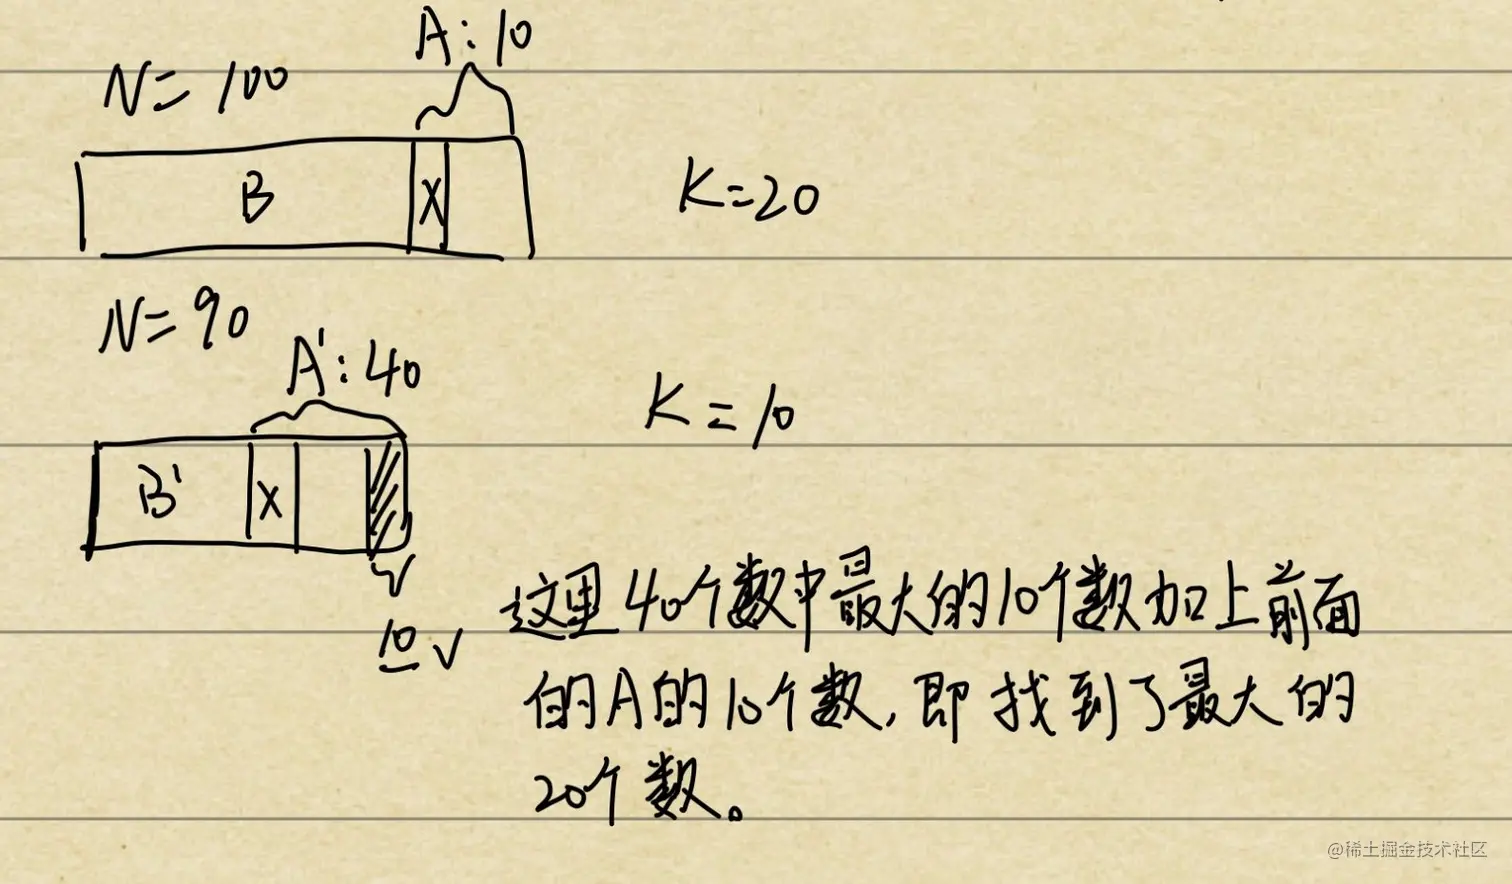 A:10
N=100
B
X
K=20
N=90
A':40
K=10
B'
X
10
这里40个数中最大的10个数加上前面
的A的10个数,即找到了最大的
20个数。
@稀土掘金技术社区